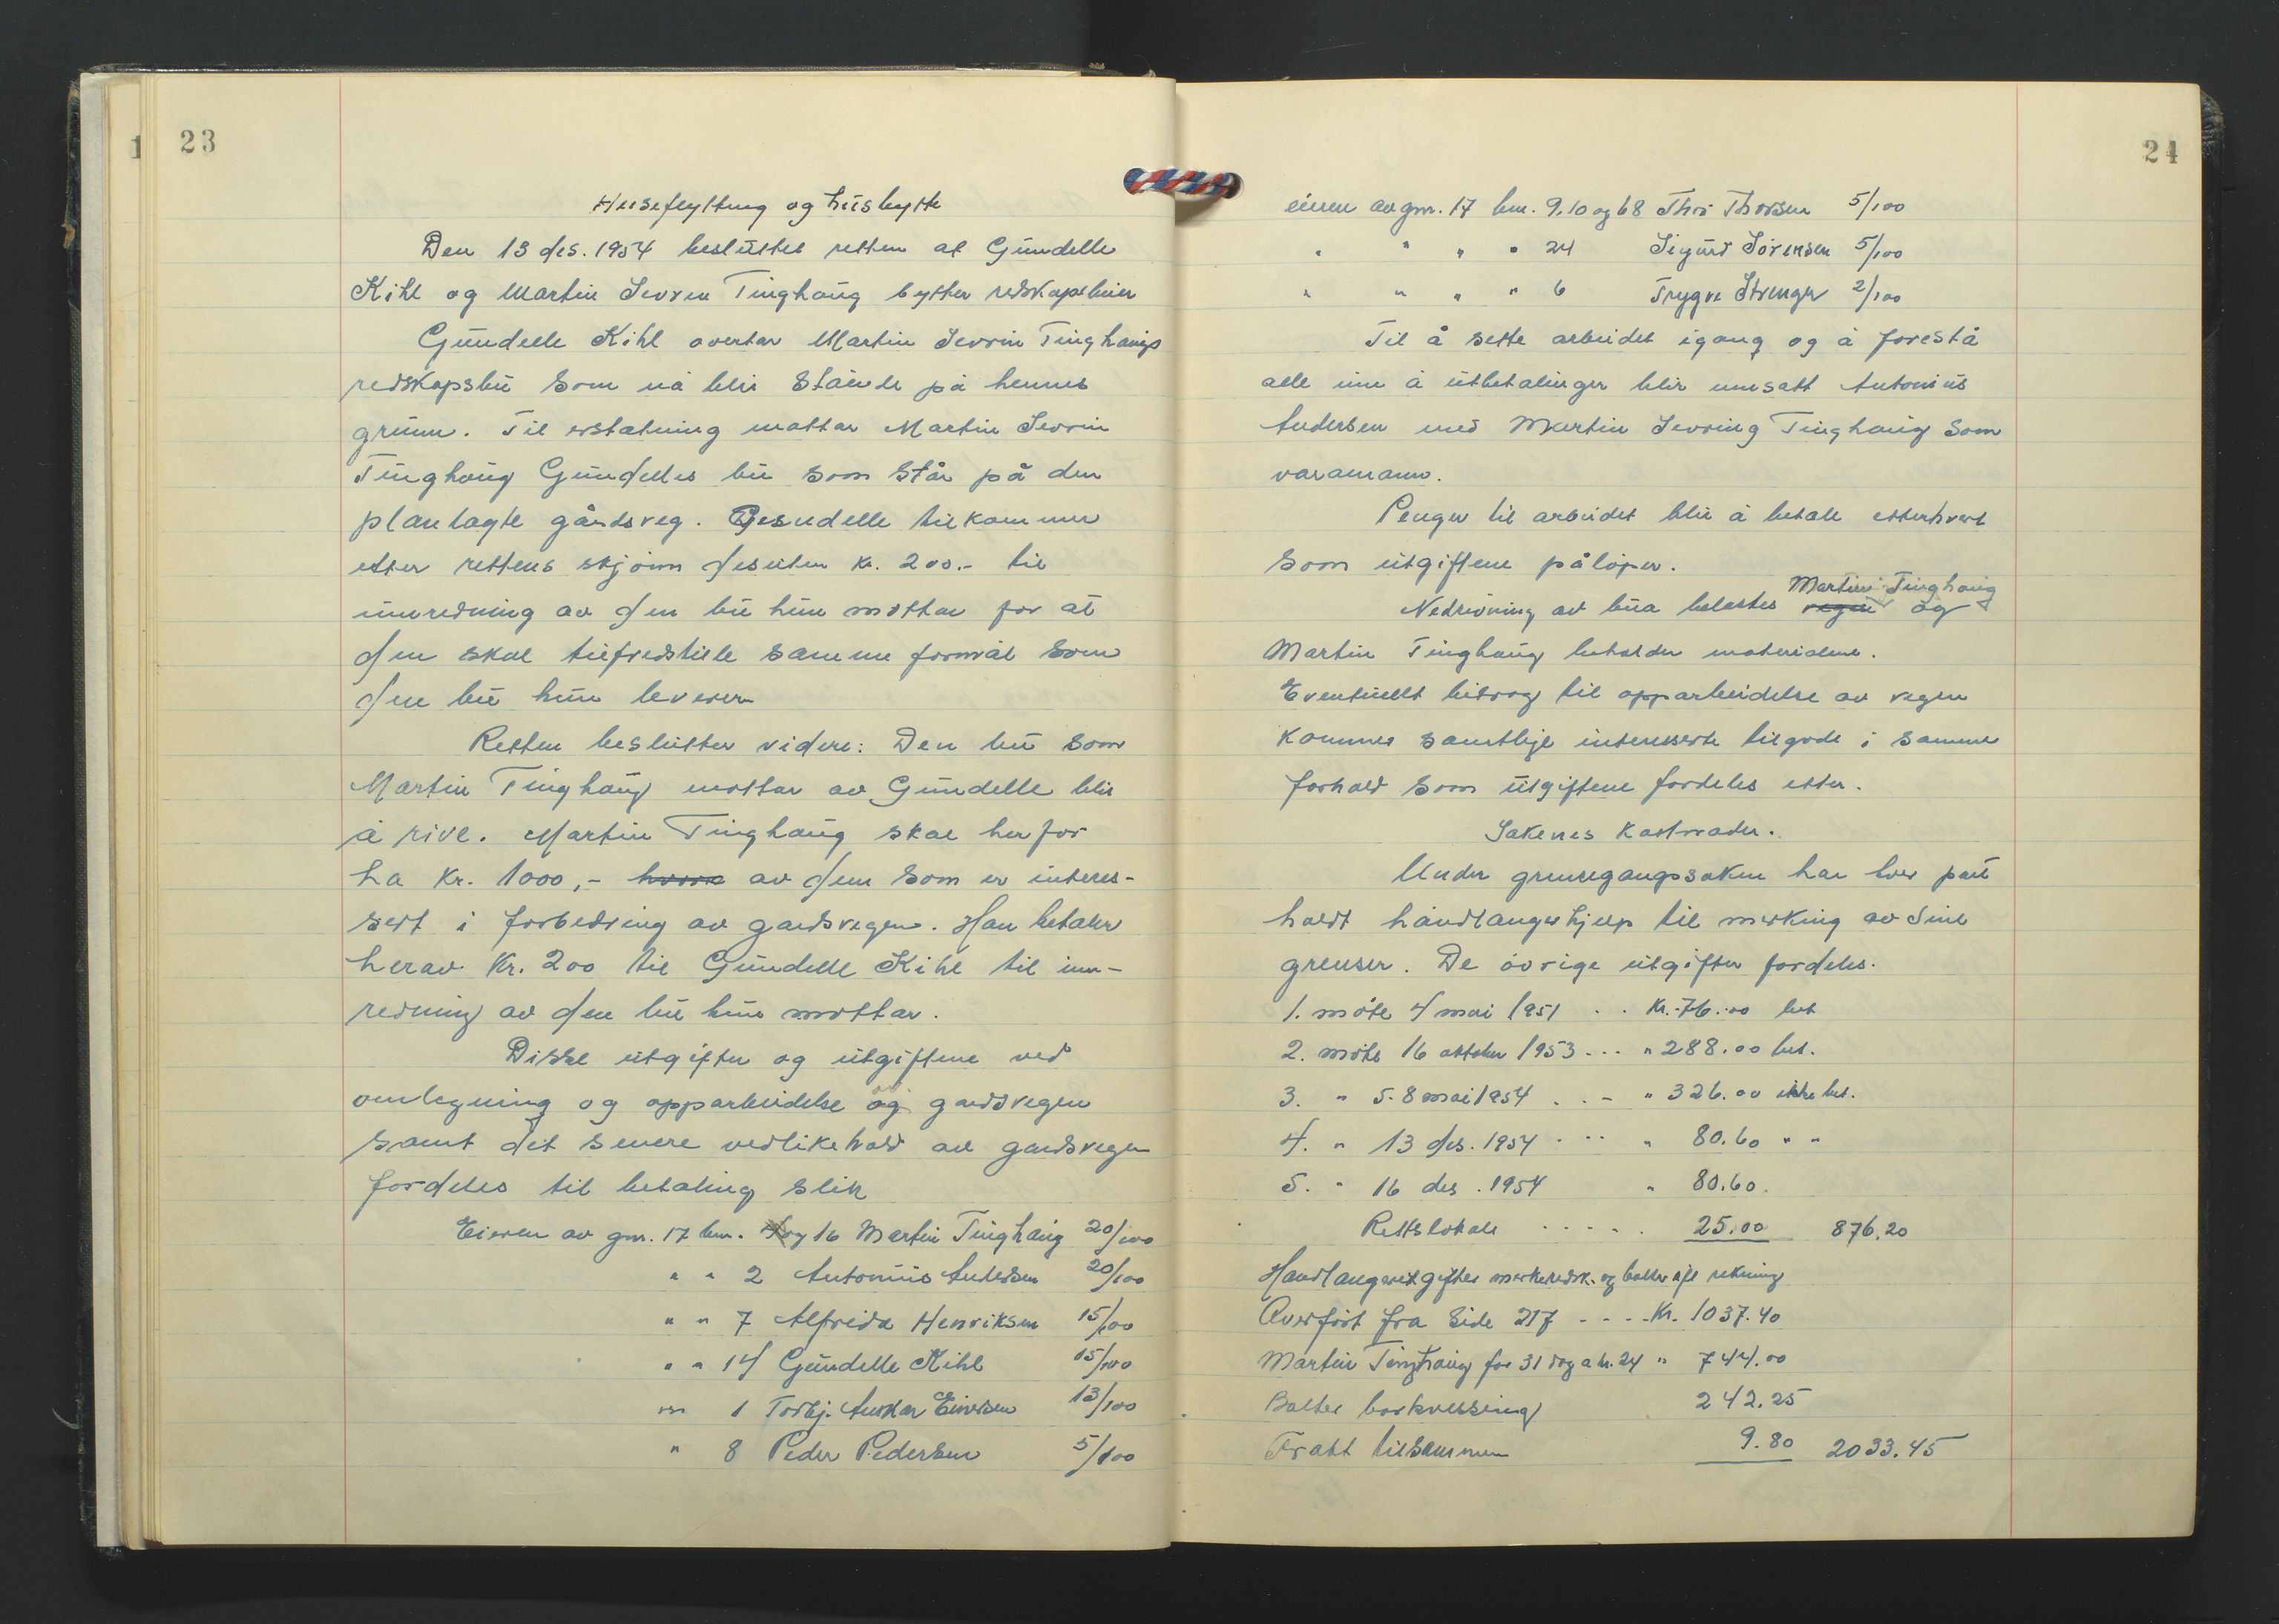 23
Huseflytting og husbytte
Den 13 des. 1954 besluttet retten at Gundelle
Kihl og Martin Sevrin Tinghaug bytter redskapsbuer
Gundelle Kihl overtar Martin Sevrin Tinghaugs
redskapsbu som nå blir stående på hennes
grunn. Til erstatning mottar Martin Sevrin
Tinghaug Gundelles bu som står på den
planlagte gårdsveg. Gundelle tilkommer
etter rettens skjønn desuten kr. 200.- til
innredning av den bu hun mottar for at
den skal tilfredstille samme formål som
den bu hun leverer
Retten beslutter videre: Den bu som
Martin Tinghaug mottar av Gundelle blir
å rive. Martin Tinghaug skal herfor
ha kr. 1000,- av dem som er interes-
sert i forbedring av gardsvegen. Han betaler
herav Kr. 200 til Gundelle Kihl til inn-
redning av den bu hun mottar.
Disse utgifter og utgiftene ved
omlegning og opparbeidelse og gardsvegen
samt det senere vedlikehold av gardsvegen
fordeles til betaling slik
Eieren av gnr. 17 bnr. og 16 Martin Tinghaug 20/100
" " 2 Antonius Andersen 20/100
" " 7 Alfrida Henriksen 15/100
" " 14 Gundelle Kihl 15/100
" " 1 Torbj. Einersen 13/100
" 8 Peder Pedersen 5/100
24
eieren av gnr. 17 bnr. 9, 10 og 68 Thor Thorsen 5/100
" " " " 24 Sigurd Sørensen 5/100
" " " " 6 Trygve Strenger 2/100
Til å sette arbeidet igang og å forestå
alle inn å utbetalinger blir innsatt Antonius
Andersen med Martin Sevring Tinghaug som
varamann.
Penger til arbeidet blir å betale etterhvert
som utgiftene påløper.
Martin Tinghaug
Nedrivning av bua belastes vegen og
Martin Tinghaug beholder materialene.
Eventuellt bidrag til opparbeidelse av vegen
kommer samtlige interesserte tilgode i samme
forhold som utgiftene fordeles etter.
Sakenes kostnader.
Under grensegangssaken har hver part
holdt håndlangerhjelp til merking av sine
grenser. De øvrige utgifter fordeles.
1. møte 4 mai 1951 . . Kr. 76.00 bet
2. møte 16 oktober 1953 . . . " 288.00 bet.
3. " 5-8 mai 1954 . . - " 326.00 ikke bet.
4. " 13 des. 1954 . . . " 80.60 " "
5. " 16 des. 1954 " 80.60.
Rettslokale . . . . . 25.00 876,20
Handlangerutgifter merkeredsk. og bolter ifl rekning
Overført fra side 217 - - - - Kr. 1037.40
Martin Tinghaug for 31 dag a kr. 24 " 744.00
Bolter borkvessing 242.25
Frakt tilsammen 9.80 2033.45